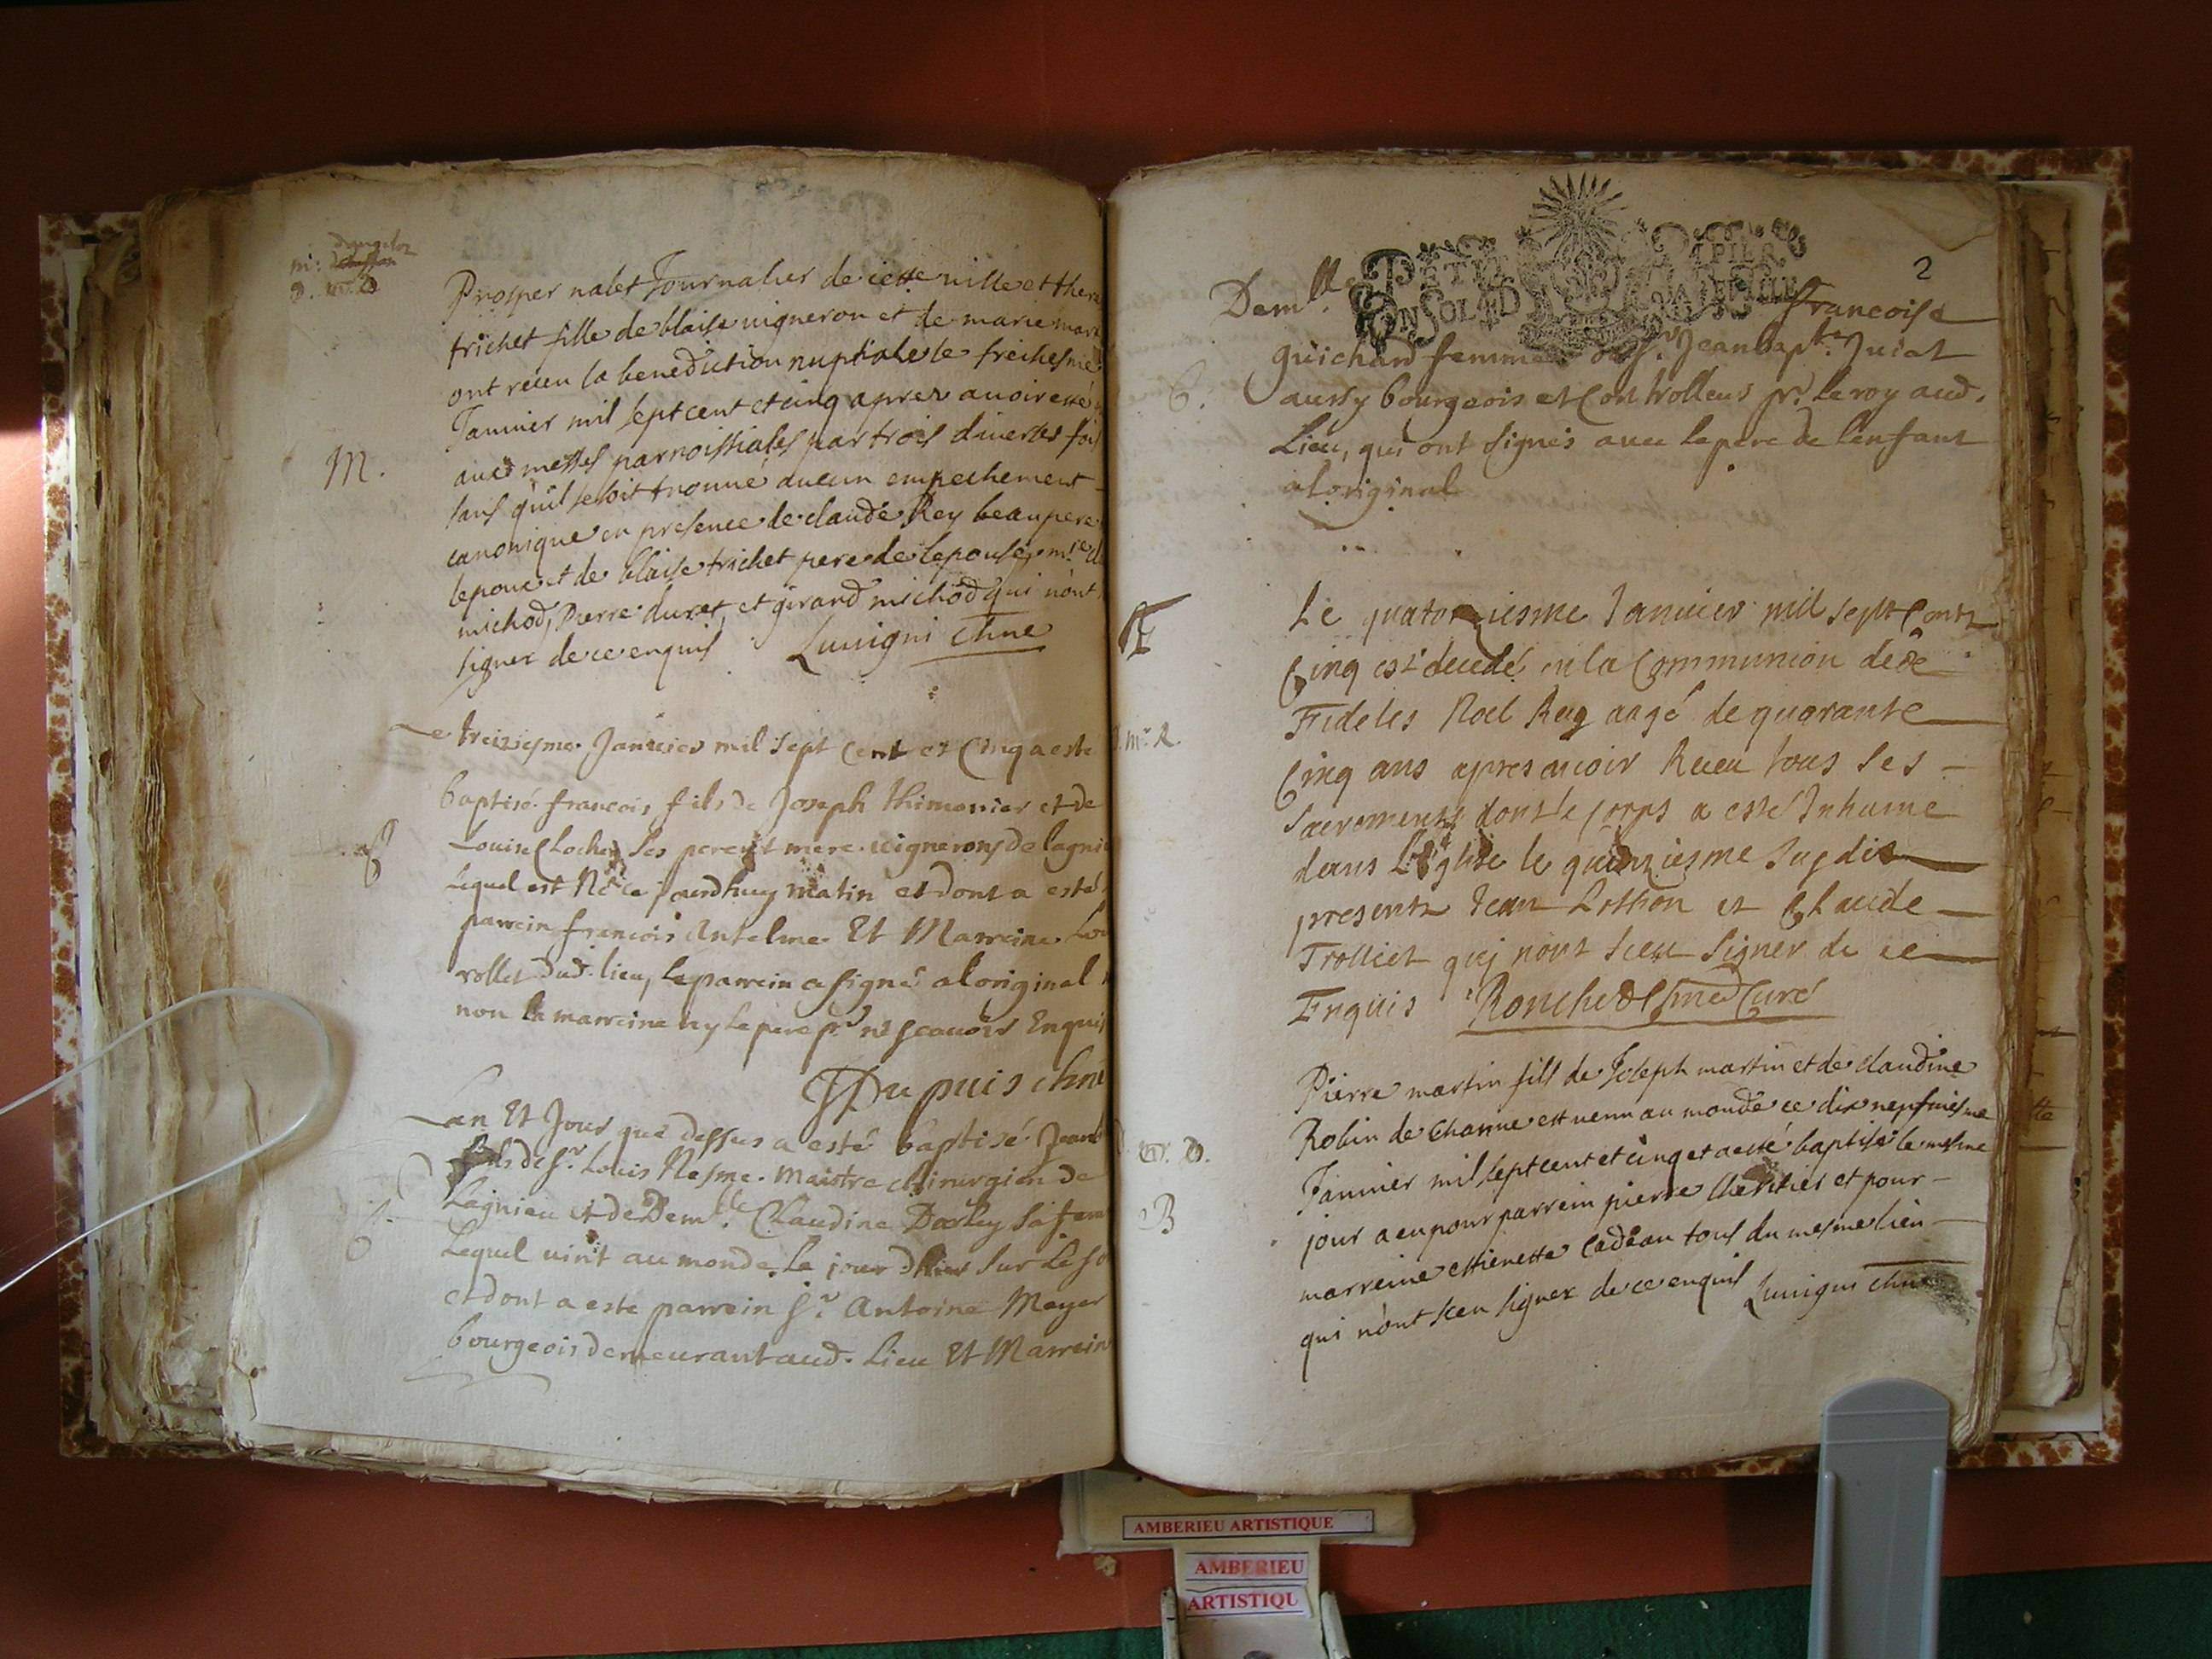 M.
Prosper nalet Journalier de cette ville et
trichet fille de blaise vigneron et de marie
ont receu la benediction nuptiale le
Januier mil sept cent et cinq aprez auoir esté
messes parroissiales par trois diuerses fois
sans quil se soit trouué aucun empechement
canonique en presence de claude Rey beaupere
et de blaise trichet pere de lepouse,
michod, Pierre duret, et girard michod qui nont
signer de ce enquis Luuigni chne
Le treiziesme Januier mil sept Cent et Cinq a este
baptisé francois fils de Joseph thimonier et de
Louise Clocher ses pere et mere vignerons de
Lequel est Né ce jourdhuy matin et dont a esté
parrein francois Antelme Et Marreine
rollet dud. lieu, le parrein a signé aloriginal
non la marreine ny le pere pr. ne scauoir
Dupuis chne
Lan Et Jour que dessus a esté baptisé Jean
fils de Sr. Louis Nesme Maistre chirurgien de
Lagnieu et de Demlle. Claudine sa
Lequel uint au monde le jour dhier sur le
et dont a este parrein Sr. Antoine Meyer
bourgeois demeurant aud. Lieu Et
2
Demlle. francoise
guichard femme Sr. Jean bapte. Juiat
aussy bourgeois et Controlleur pr. le roy aud.
Lieu, qui ont signés auec le pere de lenfant
aloriginal
Le quatorziesme Januier mil sept Cents
Cinq est decedé en la Communion
Fideles Noel Rey aagé de quarante
Cinq ans apres auoir Receu tous ses
Sacrements dont le corps a esté Inhume
dans LEglise le quinziesme susdit
presents Jean et Claude
Trolliet qui nont sceu signer de ce
Enquis Curé
Pierre martin fils de Joseph martin et de claudine
Robin de est venu au monde ce dix neufuiesme
Januier mil sept cent et cinq et a esté baptisé le mesme
jour a eu pour parrein pierre et pour
marreine ettienette cadeau tous du mesme lieu
qui n'ont sceu signer de ce enquis Luuigni chne
B
AMBERIEU ARTISTIQUE
AMBERIEU
ARTISTIQU